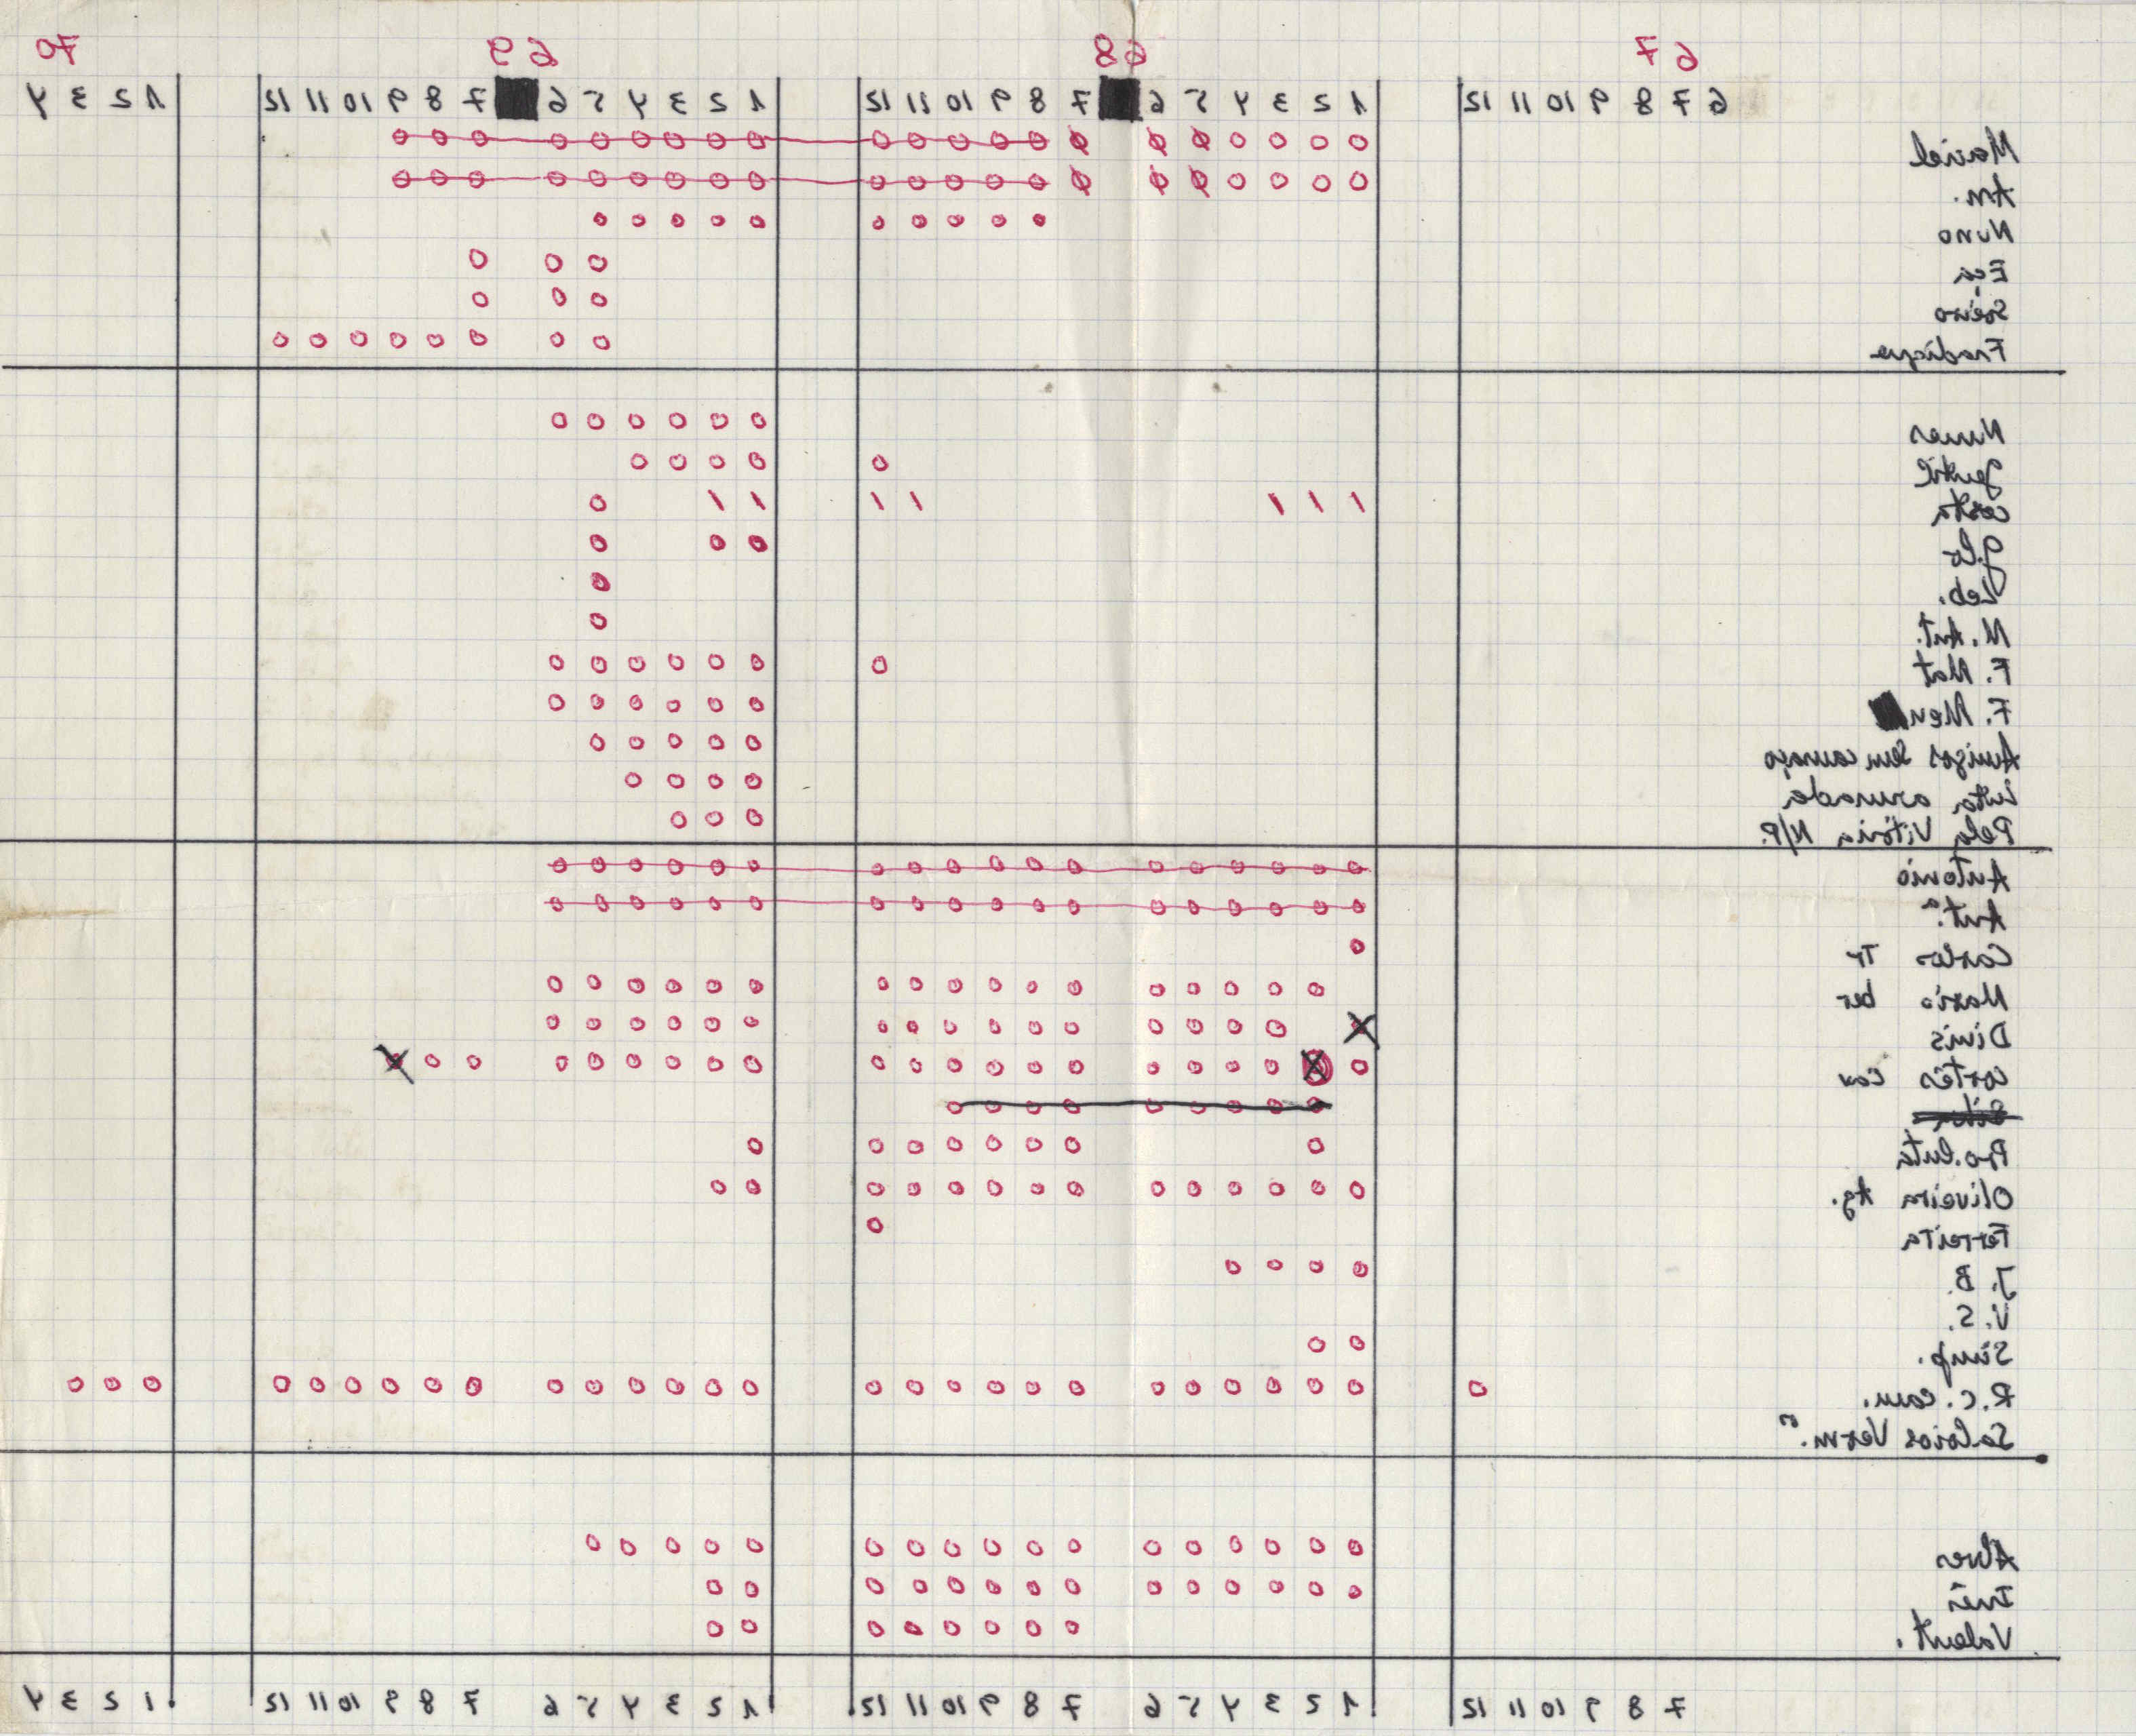 67 68 69 70
6 7 8 9 10 11 12 1 2 3 4 5 6 7 8 9 10 11 12 1 2 3 4 5 6 7 8 9 10 11 12 1 2 3 4
Maciel
Am.
Nuno
Eça
Soeiro
Fradique
Nunes
Gentil
Costa
g.lo
Zeb.
M. Ant.
F. Mat
F. Men
Amigos sem cansaço
luta armada
Pela Vitória N/P.
António
Ant.ª
Carlos Tr
Mario ber
Dinis
Cortês cov
Silva
Pro.luta
Oliveira Ag.
Ferreira
J. B.
V. S.
Simp.
R. C. cam.
Saloios Verm.os
Alves
Inês
Valent.
7 8 9 10 11 12 1 2 3 4 5 6 7 8 9 10 11 12 1 2 3 4 5 6 7 8 9 10 11 12 1 2 3 4